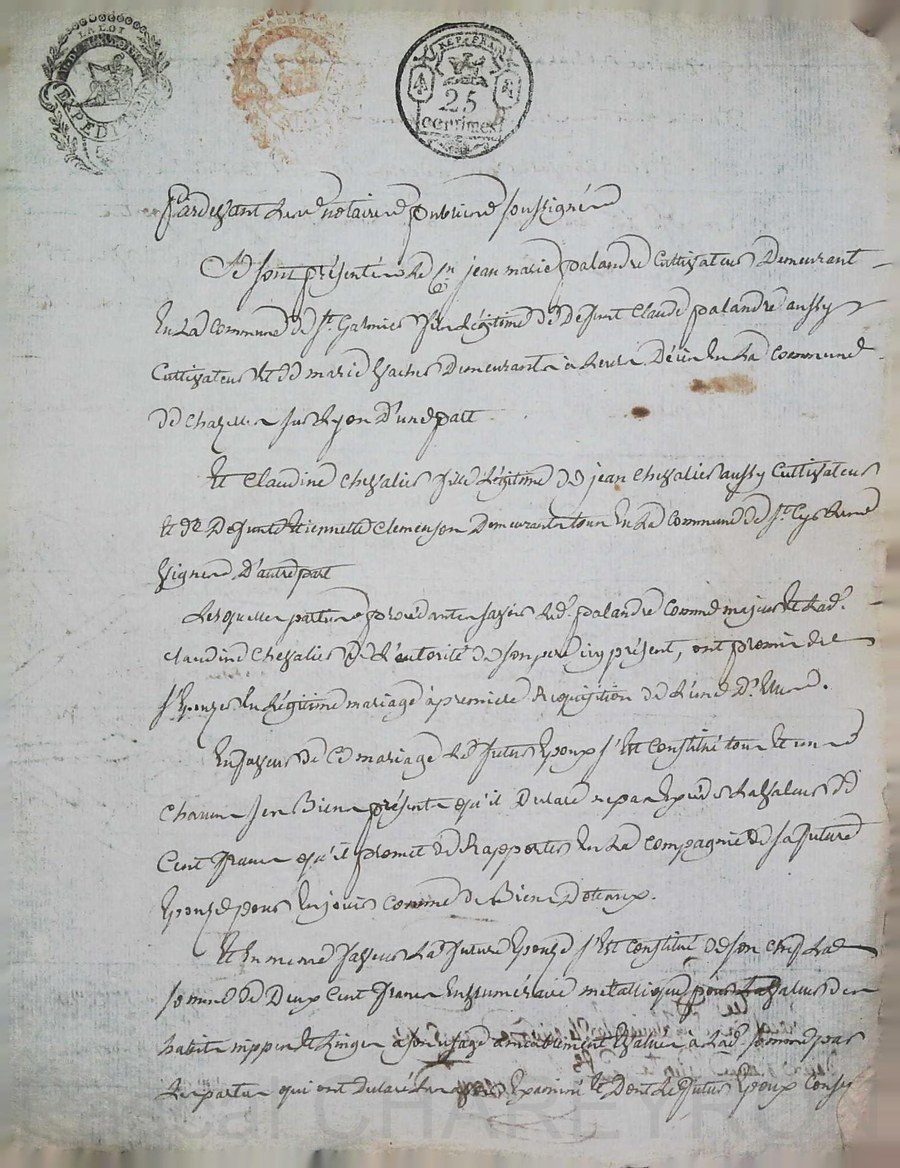 LA LOI
EXPÉDITION
REP. FRA.
25
centimes
Pardevant les notaires publics soussignés
Se sont présentés le Cn jean marie palandre Cultivateur Demeurant
En La Commune de St. Galmier fils Légitime de Defunt Claude palandre aussy
Cultivateur Et de marie Demeurants à Leur Décès En La Commune
de Chazelles sur Lyon D'une part
Et Claudine Chevalier fille Légitime de jean Chevalier aussy Cultivateur
Et de Defunte Etiennette Clemençon Demeurants tous En La Commune de St. Cyr Les
Vignes D'autre part
Lesquelles parties procédantes savoir Led. palandre Comme majeur Et Lad.
Claudine Chevalier de L'autorité de son père icy présent, ont promis de
s'Epouzer En Légitime mariage à première Requizition de L'un D'Eux.
En faveur de Ce mariage Led. futur Epoux s'Est Constitué tous Et uns
Chacuns ses Biens présents qu'il Déclare ne pas Excéder La valeur de
Cent francs qu'il promet de Rapporter En La Compagnie de sa future
Epouze pour En jouir Comme de Biens Dotaux.
Et En meme faveur La future Epouze s'Est Constitué de son Chef La
somme de Deux Cent francs En numéraire métallique pour La valeur des
habits nippes Et Linges à son usage amiablement Evalués à Lad. somme par
Les parties qui ont Déclaré Les avoir Examiné Et Dont Le futur Epoux
CHAREYRON